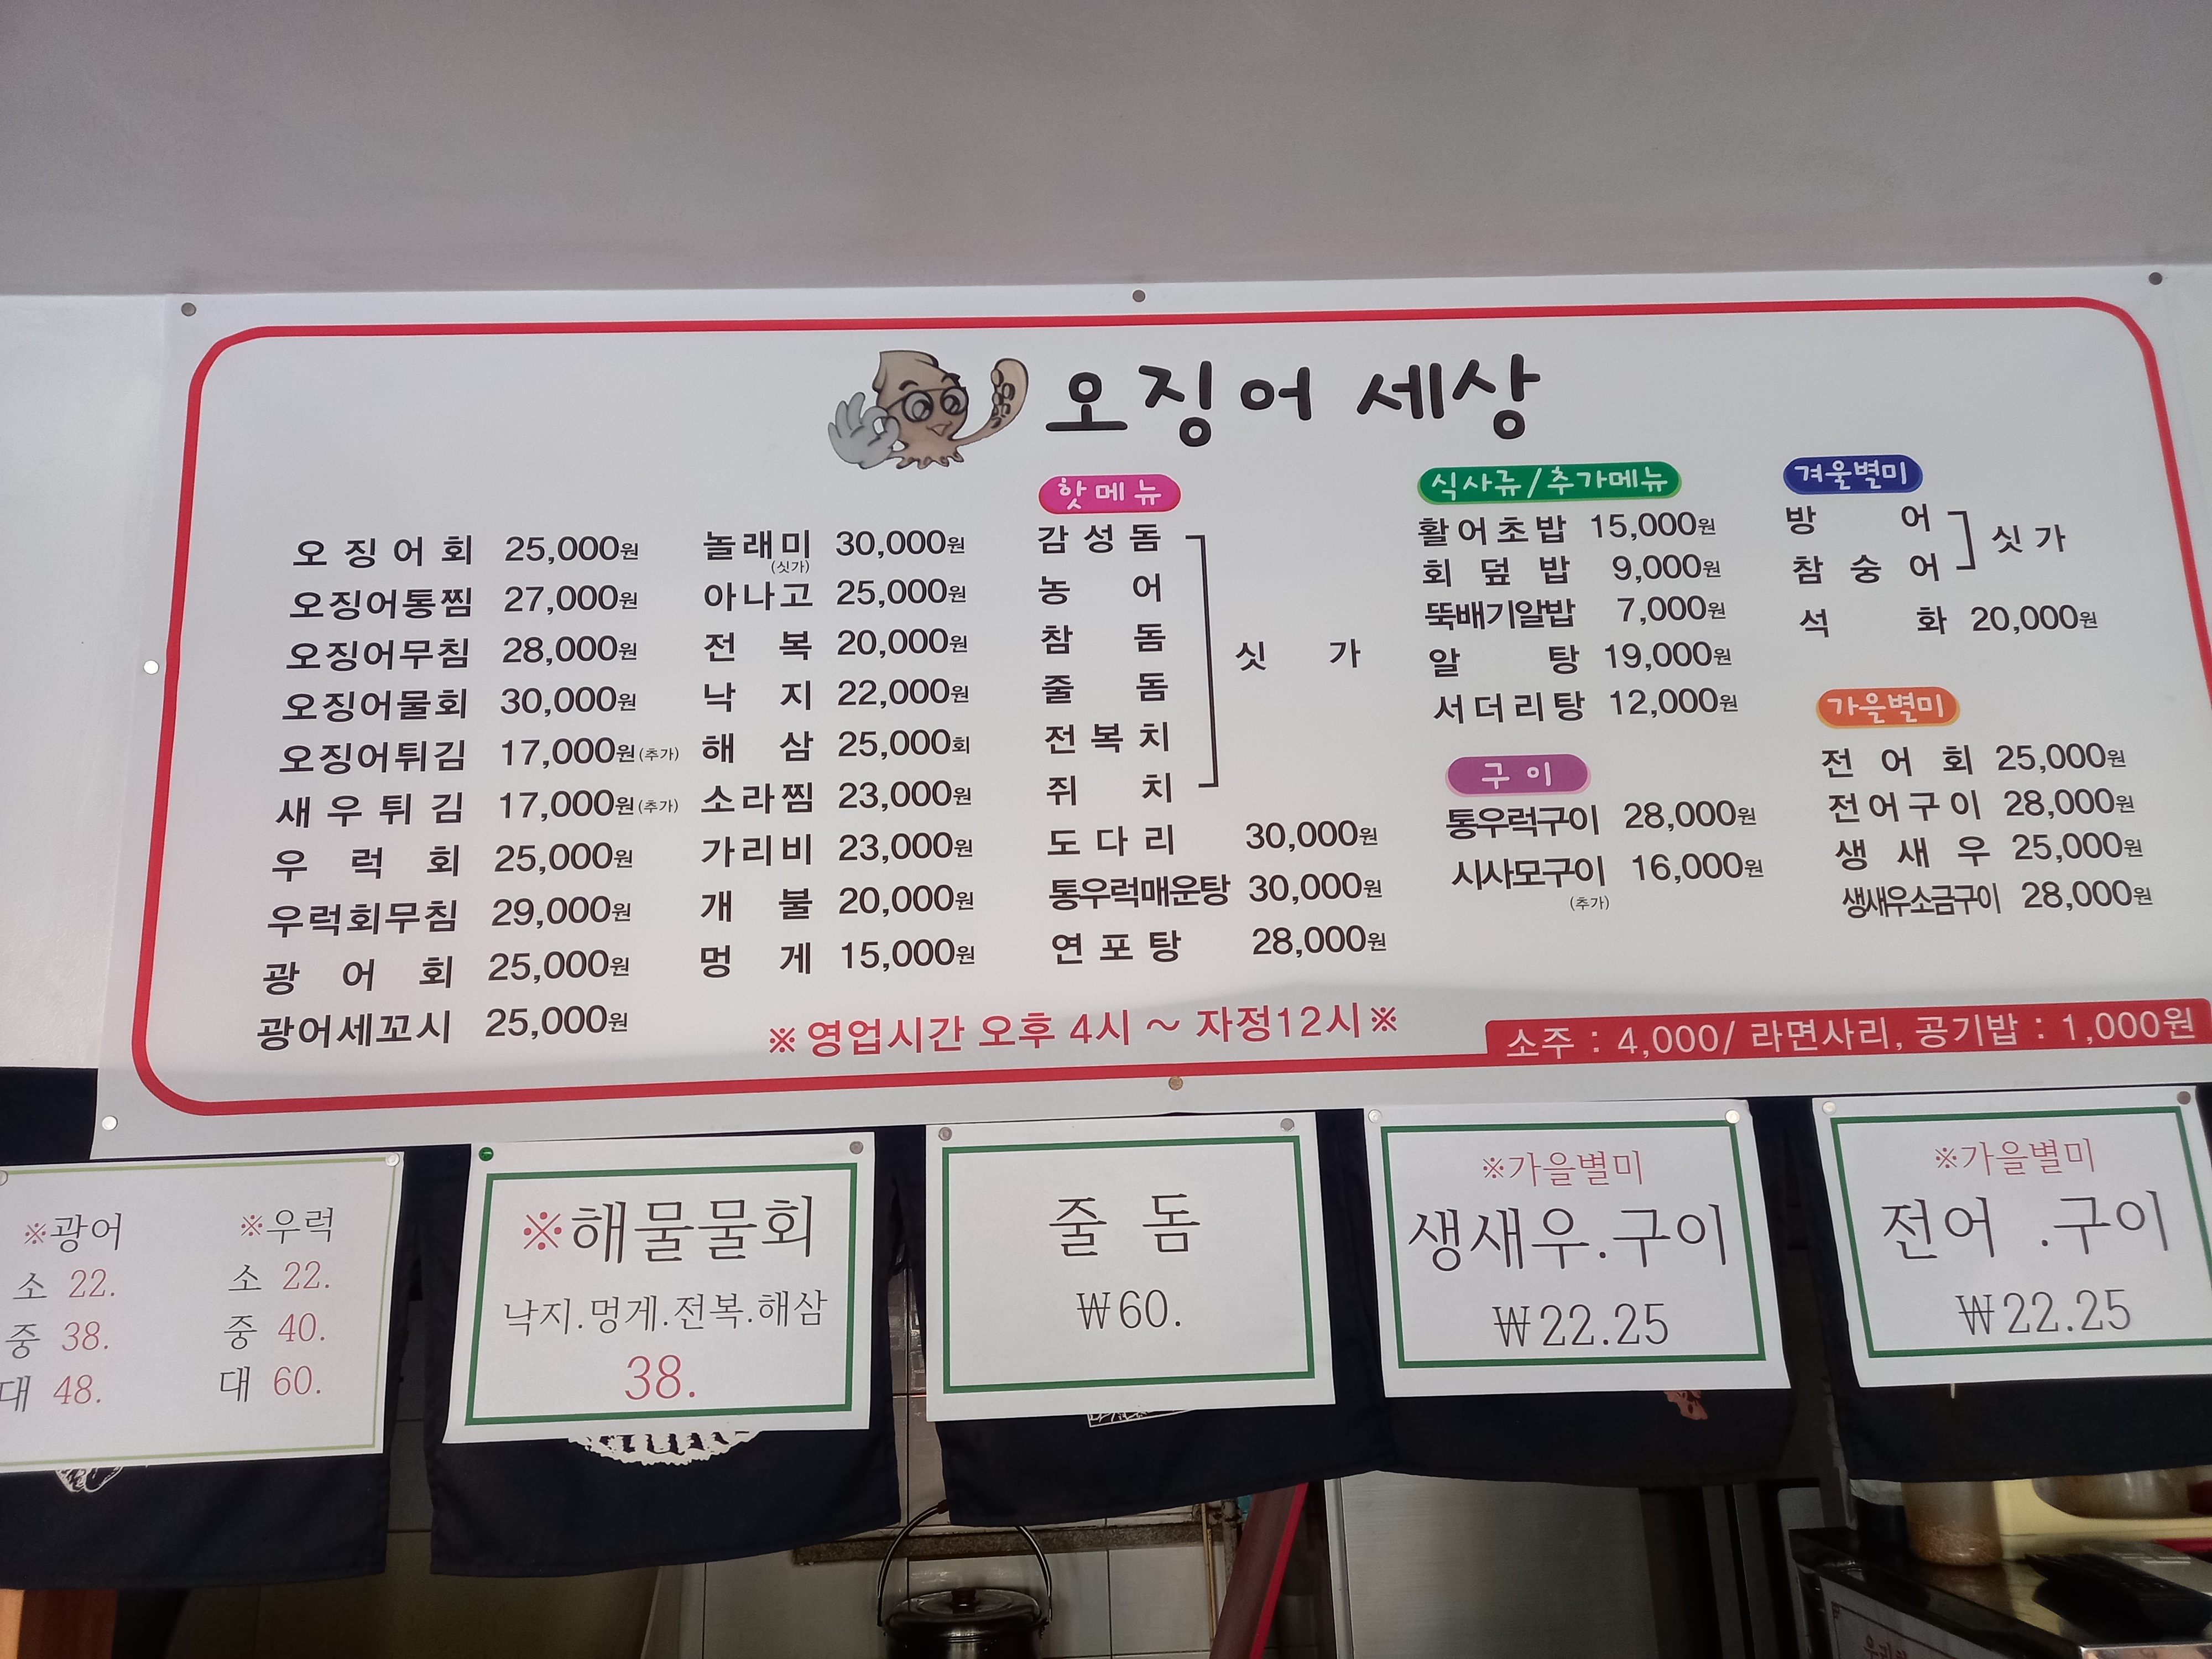 오징어 세상
오징어회 25,000원
오징어통찜 27,000원
오징어무침 28,000원
오징어물회 30,000원
오징어튀김 17,000원(추가)
새우튀김 17,000원(추가)
우럭회 25,000원
우럭회무침 29,000원
광어회 25,000원
광어세꼬시 25,000원
놀래미 30,000원
(싯가)
아나고 25,000원
전복 20,000원
낙지 22,000원
해삼 25,000회
소라찜 23,000원
가리비 23,000원
개불 20,000원
멍게 15,000원
핫메뉴
감성돔
농어
참돔
줄돔
전복치
쥐치
싯가
도다리 30,000원
통우럭매운탕 30,000원
연포탕 28,000원
식사류/추가메뉴
활어초밥 15,000원
회덮밥 9,000원
뚝배기알밥 7,000원
알탕 19,000원
서더리탕 12,000원
구이
통우럭구이 28,000원
시사모구이 16,000원
(추가)
겨울별미
방어
참숭어
싯가
석화 20,000원
가을별미
전어회 25,000원
전어구이 28,000원
생새우 25,000원
생새우소금구이 28,000원
※영업시간 오후 4시 ~ 자정12시※
소주 : 4,000/ 라면사리, 공기밥 : 1,000원
※광어
소 22.
중 38.
대 48.
※우럭
소 22.
중 40.
대 60.
※해물물회
낙지.멍게.전복.해삼
38.
줄돔
₩60.
※가을별미
생새우.구이
₩22.25
※가을별미
전어 .구이
₩22.25